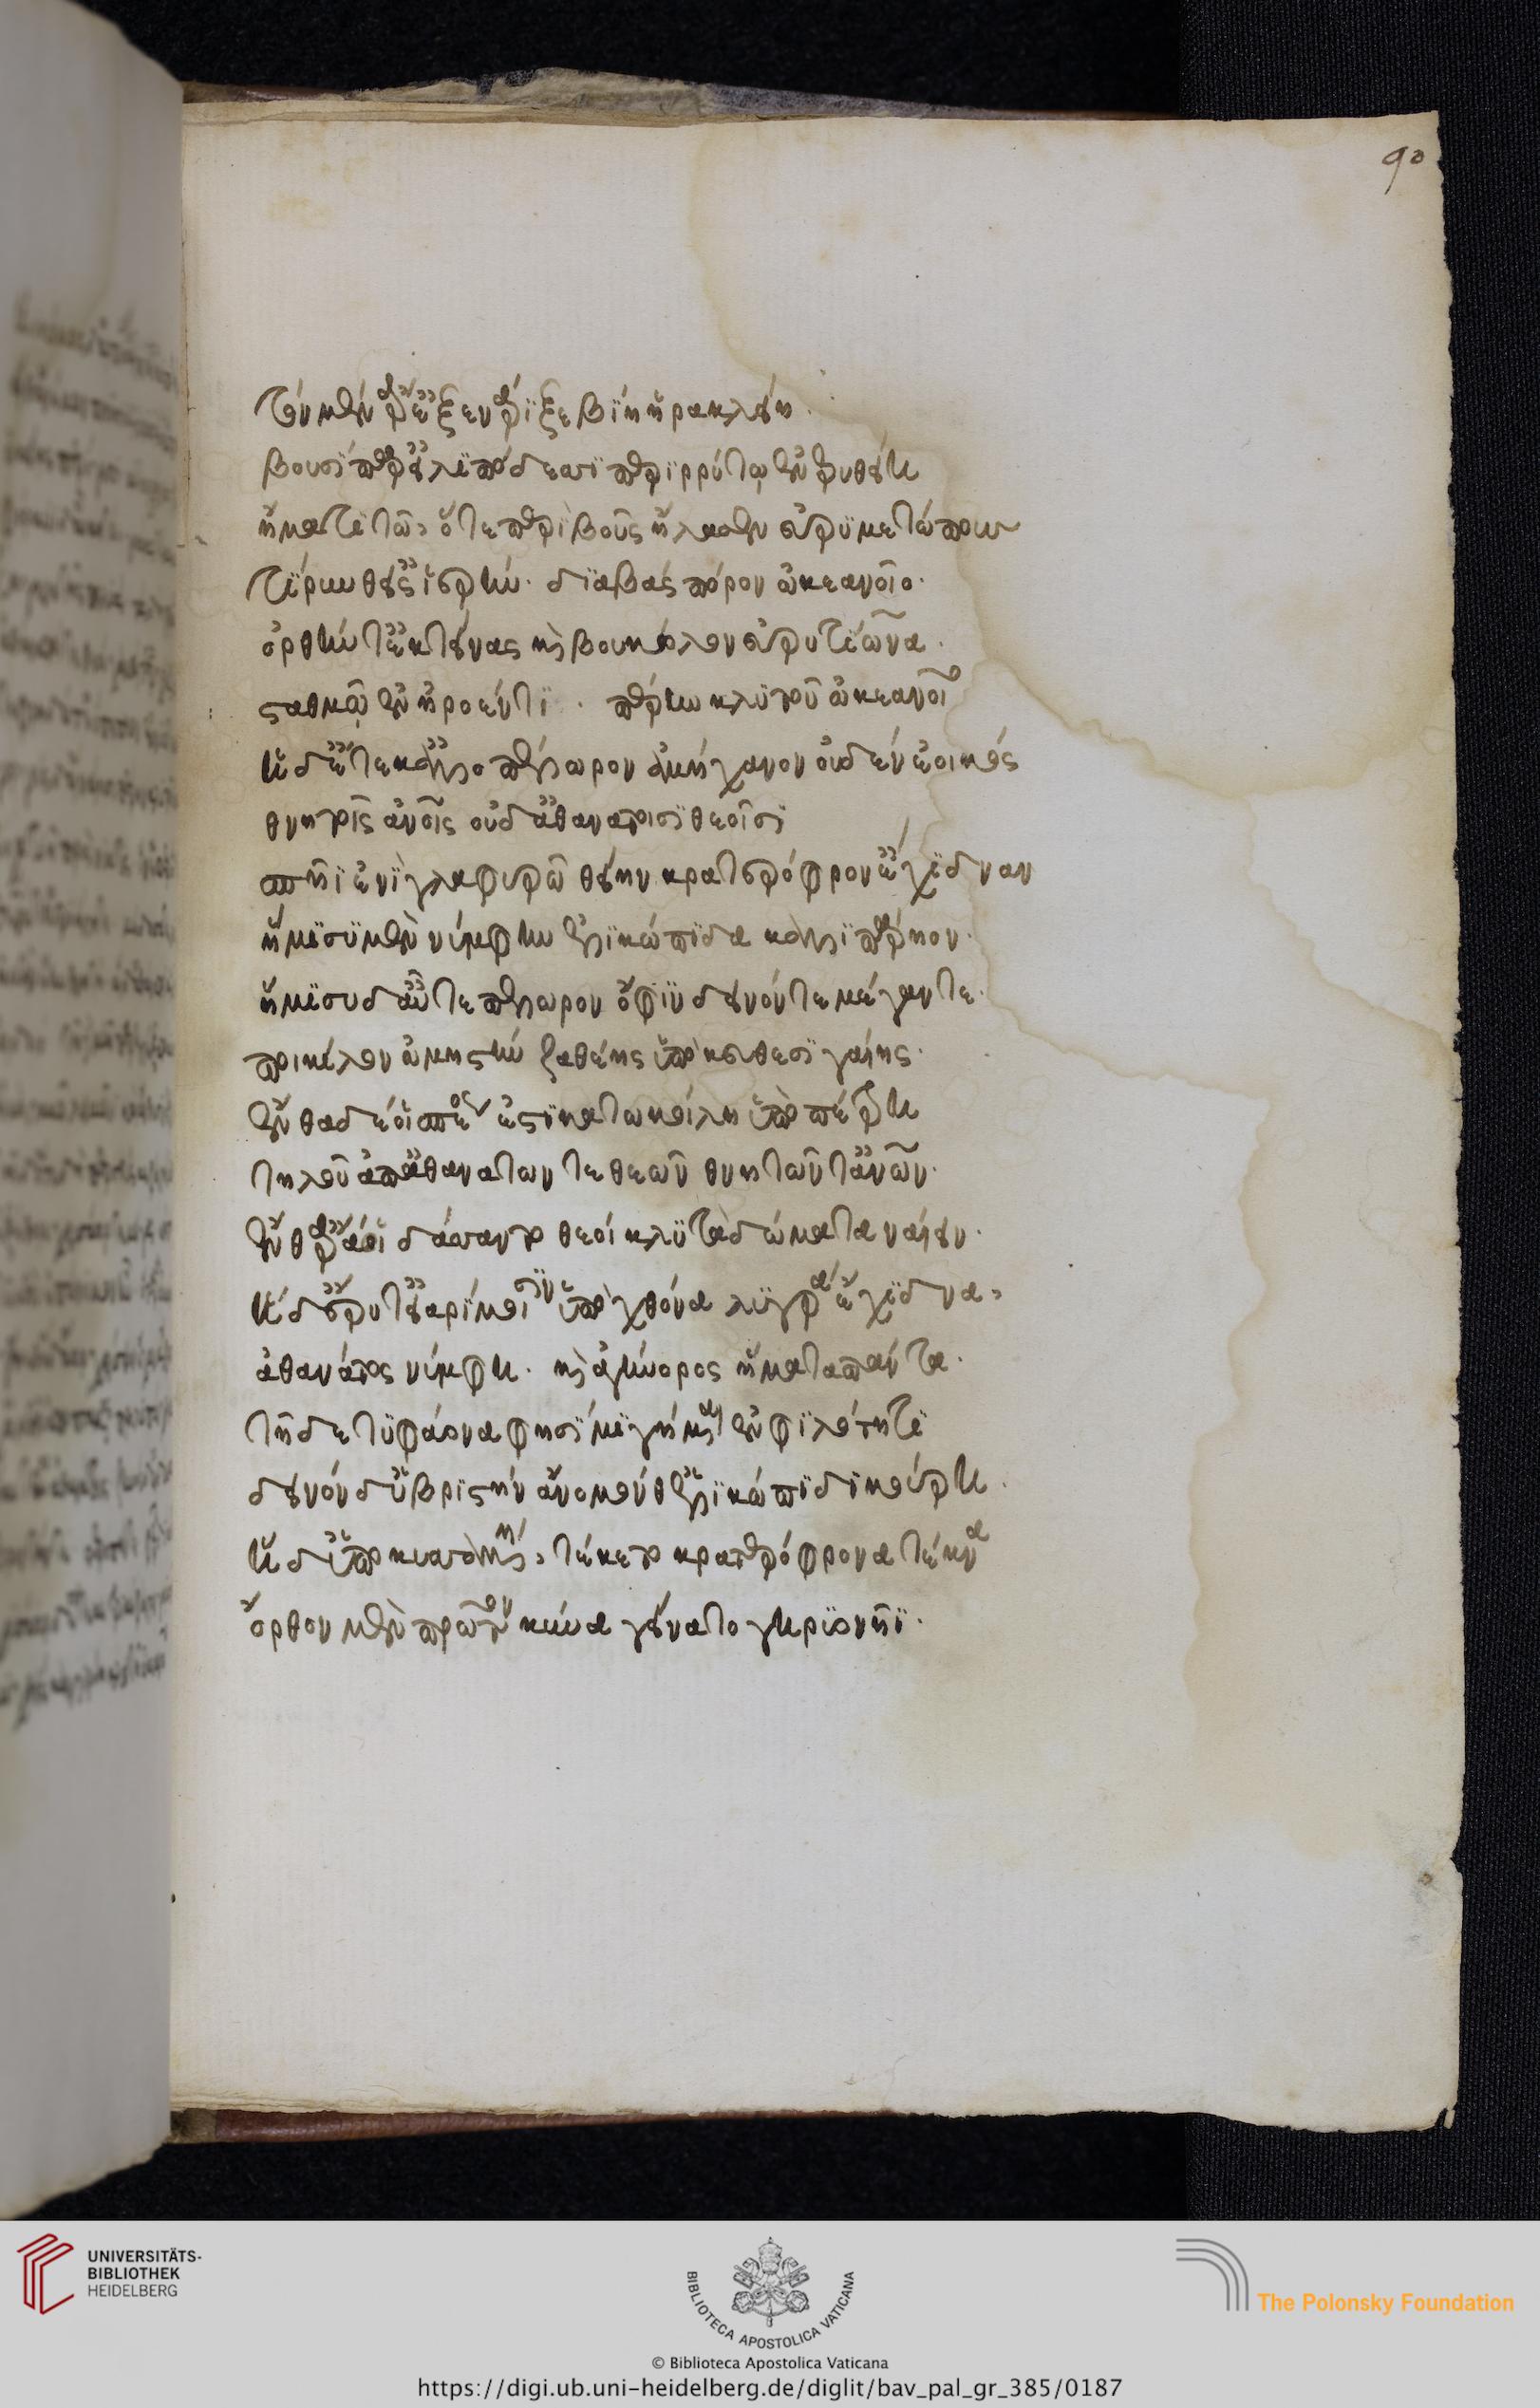 90
τὸν μὲν ἄρ' ἐξενάριξε βίη ἡρακλείη.
βουσὶ παρ' εἰλιπόδεσσι περιρρύτω ἐν ἐρυθείη
ἤματι τῶ, ὅτε περὶ βοῦς ἤλασεν εὐρυμετώπους
τίρυνθ' εἰς ἱερήν. διαβὰς πόρον ὠκεανοῖο.
ὄρθην τὲ κτείνας καὶ βουκόλον εὐρυτίωνα.
σταθμῶ ἐν ἠερόεντι. πέρην κλυτοῦ ὠκεανοῖο
ἡ δ' ἔτεκ' ἄλλο πέλωρον ἀμήχανον οὐδὲν ἐοικὸς
θνητοῖς ἀνοις οὐδ' ἀθανάτοισι θεοῖσι
σπῆι ἐνὶ γλαφυρῶ θείην κρατερόφρον' ἔχιδναν
ἥμισυ μὲν νύμφην ἑλικώπιδα καλλιπάρηον.
ἥμισυ δ' αὖτε πέλωρον ὄφιν δεινόν τε μέγαν τε.
ποικίλον ὠμηστὴν ζαθέης ὑπὸ κεύθεσι γαίης.
ἔνθα δέ οἱ σπέος ἐστὶ κάτω κοίλη ὑπὸ πέτρη
τηλοῦ ἀπ' ἀθανάτων τε θεῶν θνητῶν τ' ἀνων.
ἔνθ' ἄρα οἱ δάσσαντο θεοὶ κλυτὰ δώματα ναίειν.
ἡ δ' ἔρυτ' εἰν ἀρίμοισιν ὑπὸ χθόνα λυγρὰ ἔχιδνα,
ἀθάνατος νύμφη. καὶ ἀγήραος ἤματα πάντα.
τῆ δὲ τυφάονα φησὶ μιγήμεναι ἐν φιλότητι
δεινόν δ' ὑβριστήν ἄνομόν θ' ἑλικώπιδι κούρη.
ἡ δ' ὑποκυσσαμένη, τέκετο κρατερόφρονα τέκνα
ὄρθον μὲν πρῶτον κύνα γείνατο γηρυονῆι.
UNIVERSITÄTS-
BIBLIOTHEK
HEIDELBERG
BIBLIOTECA APOSTOLICA VATICANA
The Polonsky Foundation
© Biblioteca Apostolica Vaticana
https://digi.ub.uni-heidelberg.de/diglit/bav_pal_gr_385/0187